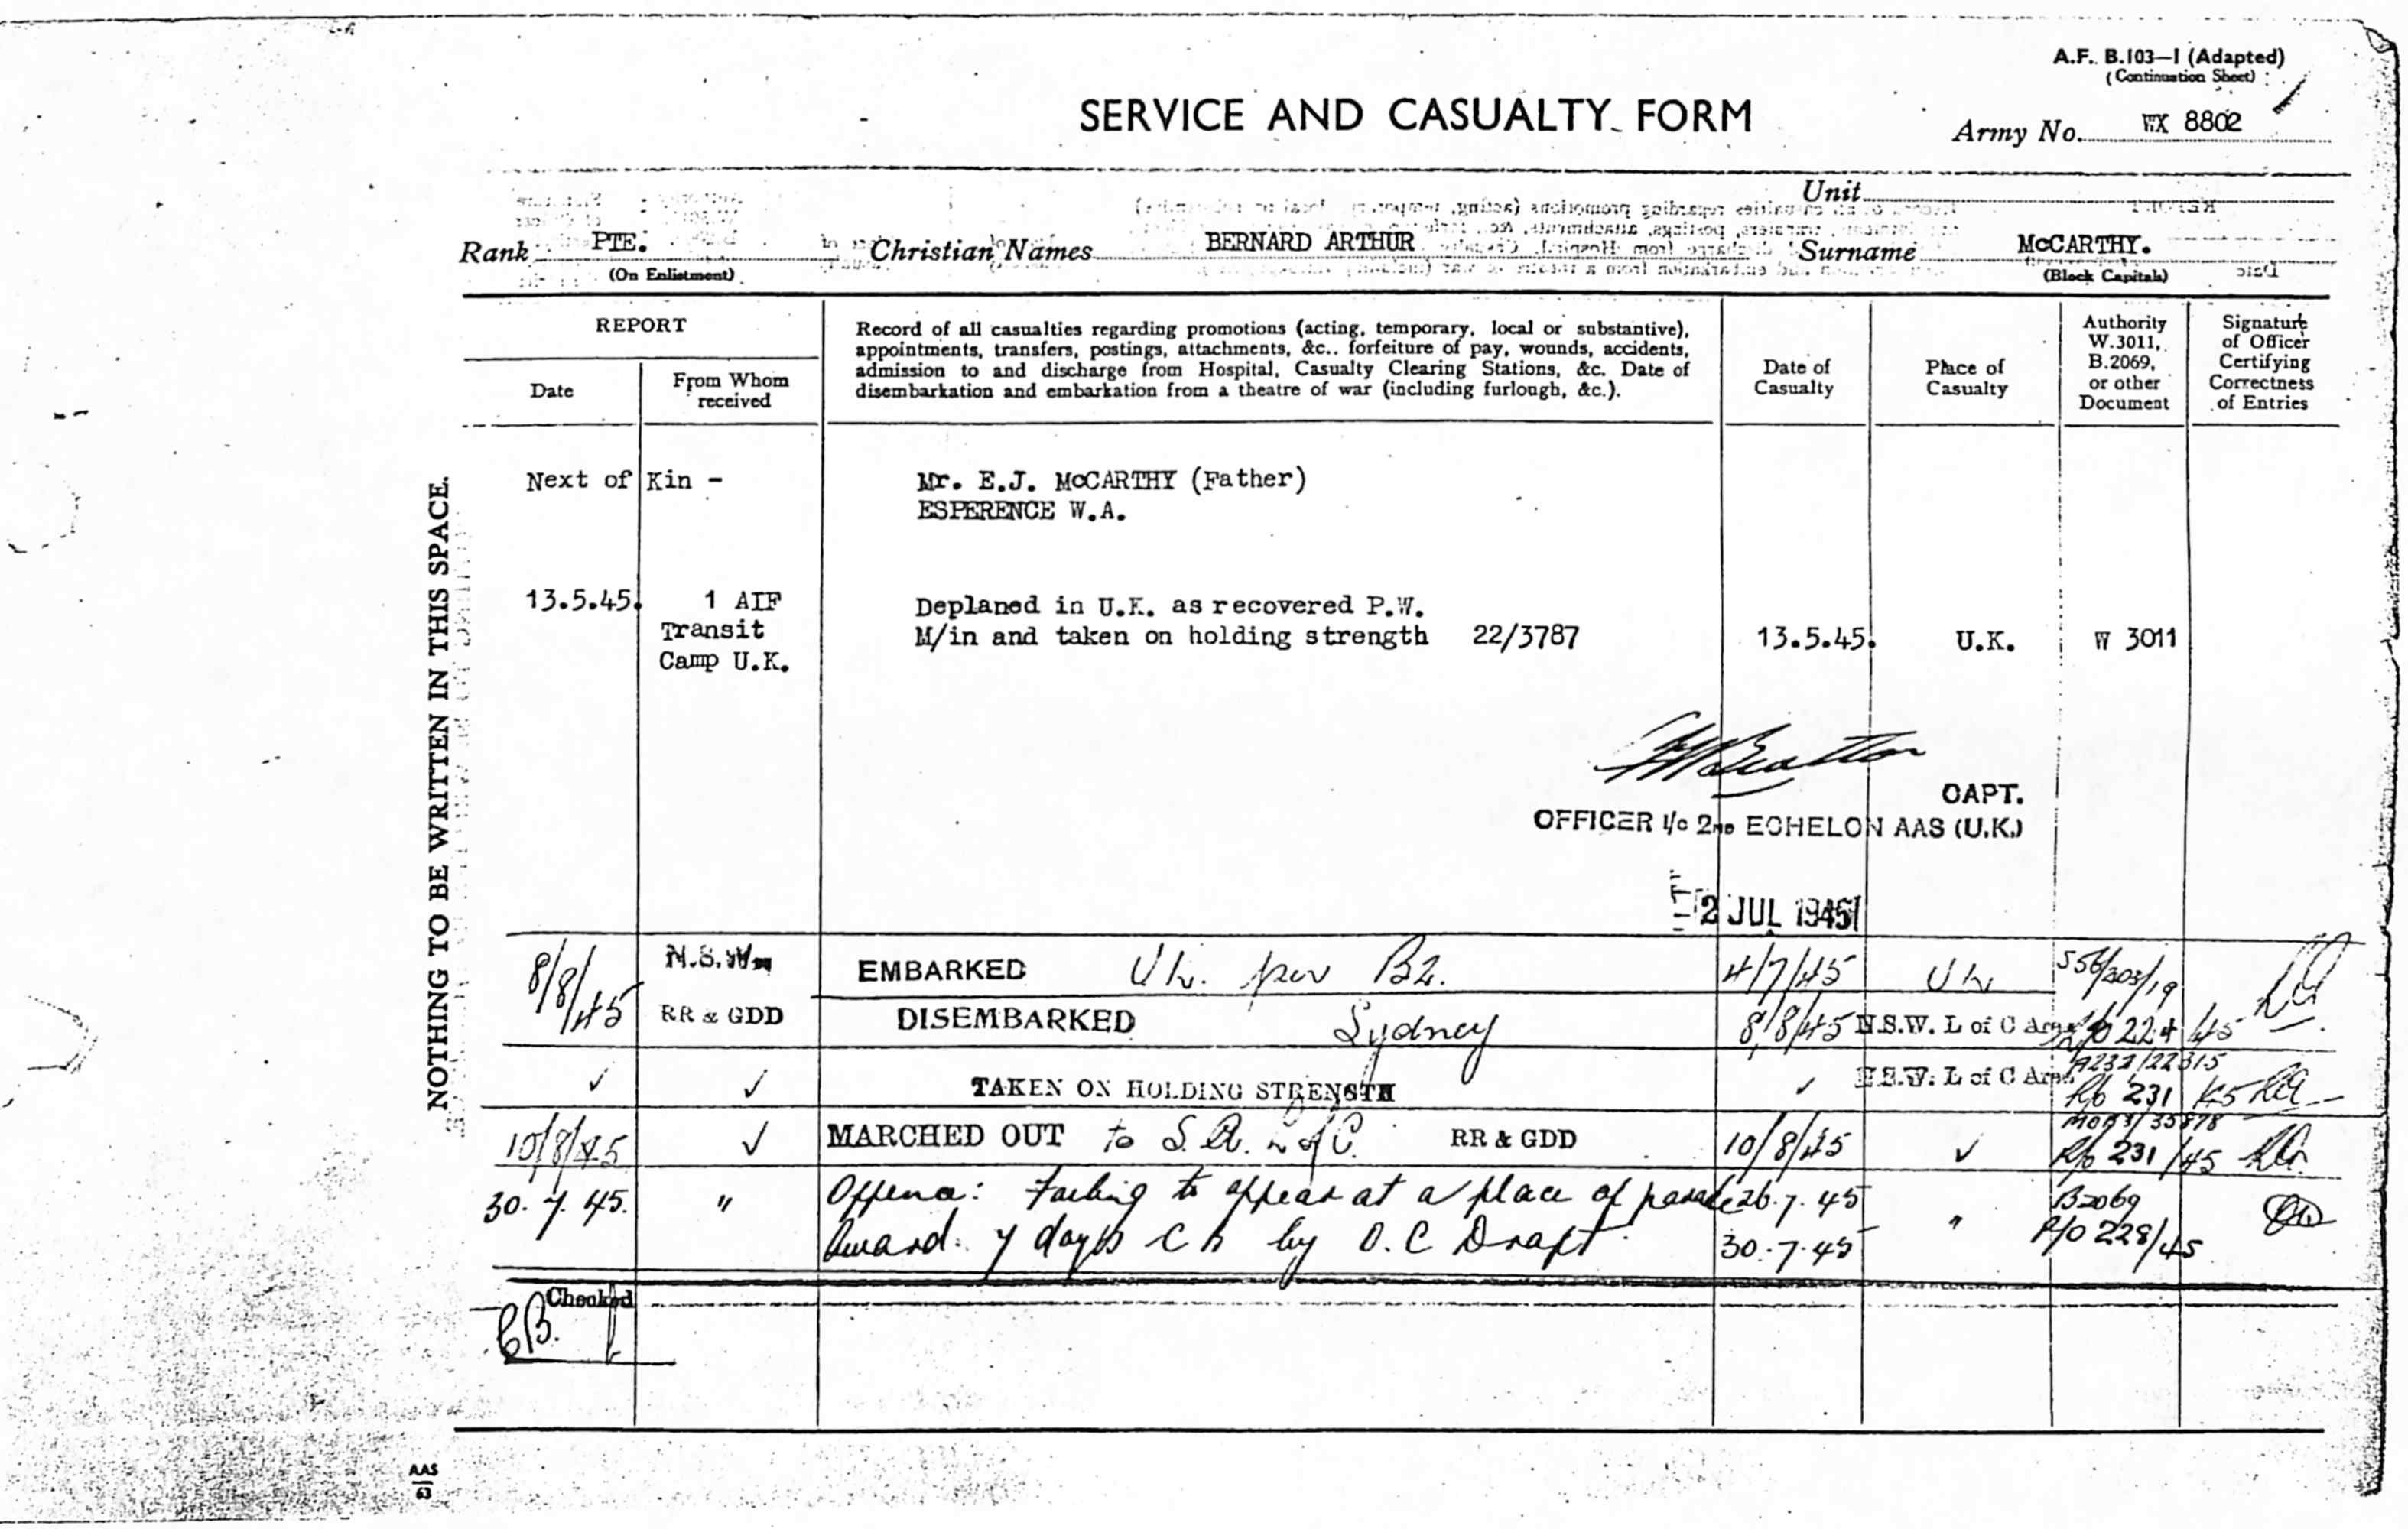 A.F. B.103—1 (Adapted)
(Continuation Sheet)
SERVICE AND CASUALTY FORM
Army No. WX 8802
Unit
Rank PTE. Christian Names BERNARD ARTHUR Surname McCARTHY.
(On Enlistment) (Block Capitals)
REPORT
Date
From Whom
received
Record of all casualties regarding promotions (acting, temporary, local or substantive),
appointments, transfers, postings, attachments, &c.. forfeiture of pay, wounds, accidents,
admission to and discharge from Hospital, Casualty Clearing Stations, &c. Date of
disembarkation and embarkation from a theatre of war (including furlough, &c.).
Date of
Casualty
Place of
Casualty
Authority
W.3011,
B.2069,
or other
Document
Signature
of Officer
Certifying
Correctness
of Entries
NOTHING TO BE WRITTEN IN THIS SPACE.
Next of Kin - Mr. E.J. McCARTHY (Father)
ESPERENCE W.A.
13.5.45. 1 AIF
Transit
Camp U.K.
Deplaned in U.K. as recovered P.W.
M/in and taken on holding strength 22/3787 13.5.45. U.K. W 3011
CAPT.
OFFICER I/c 2ND ECHELON AAS (U.K.)
2 JUL 1945
8/8/45 N.S.W. EMBARKED U.K. per B2. 4/7/45 U.K. S56/203/19
RR & GDD DISEMBARKED Sydney 8/8/45 N.S.W. L of C Area 224/45
✓ ✓ TAKEN ON HOLDING STRENGTH ✓ N.S.W. L of C Area A232/22315
R/o 231/45
10/8/45 ✓ MARCHED OUT to S.A. L of C. RR & GDD 10/8/45 ✓ R/o 231/45
30.7.45. " Offence: Failing to appear at a place of parade 26.7.45 " B2069
Award. 7 days CB by O.C Draft. 30.7.45 R/O 228/45
Checked
AAS
63